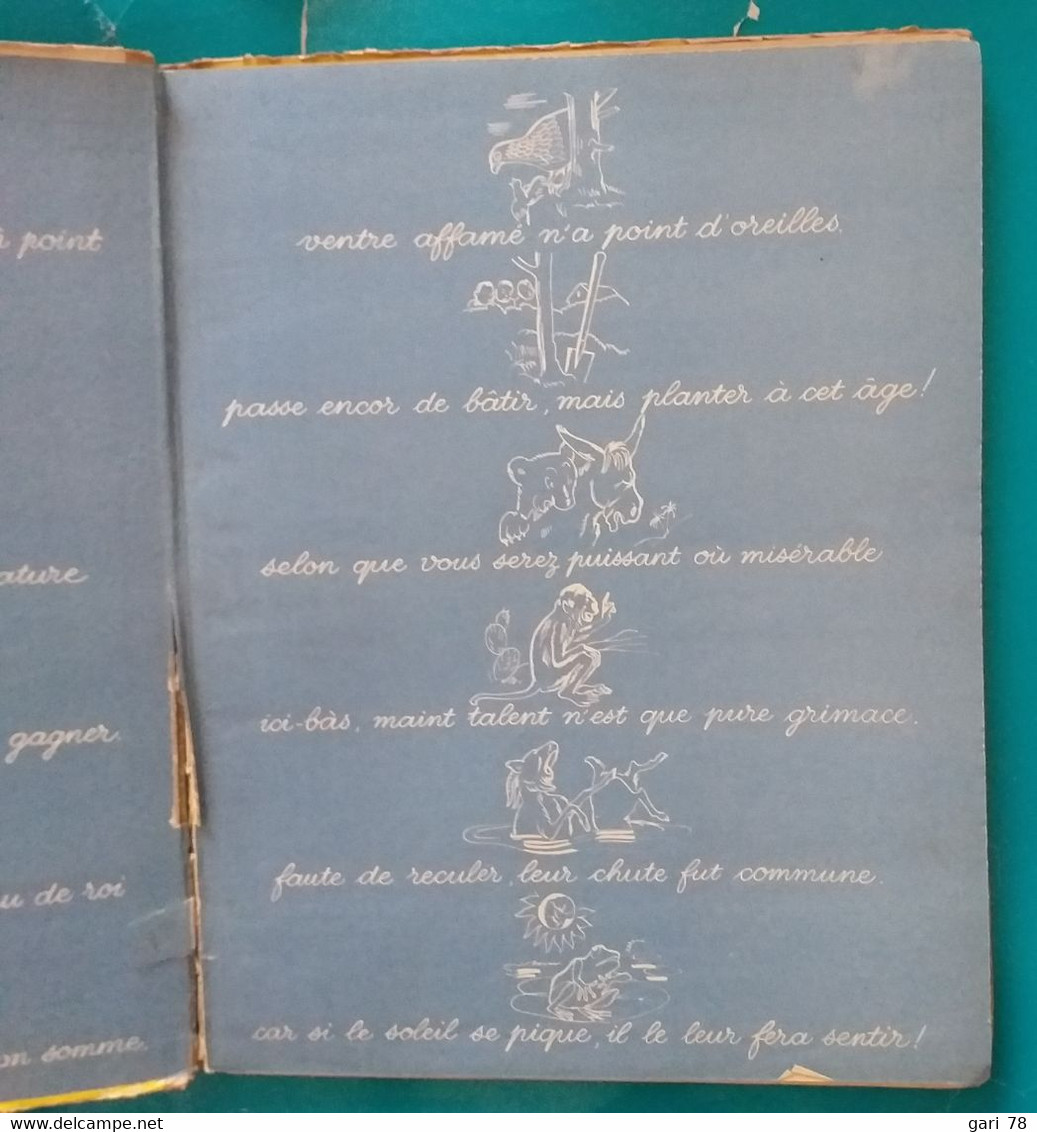 à point
ature
gagner.
u de roi
on somme.
ventre affamé n'a point d'oreilles.
passe encor de bâtir, mais planter à cet âge!
selon que vous serez puissant où misérable
ici-bàs, maint talent n'est que pure grimace.
faute de reculer, leur chute fut commune.
car si le soleil se pique, il le leur fera sentir!
www.delcampe.net
gari 78